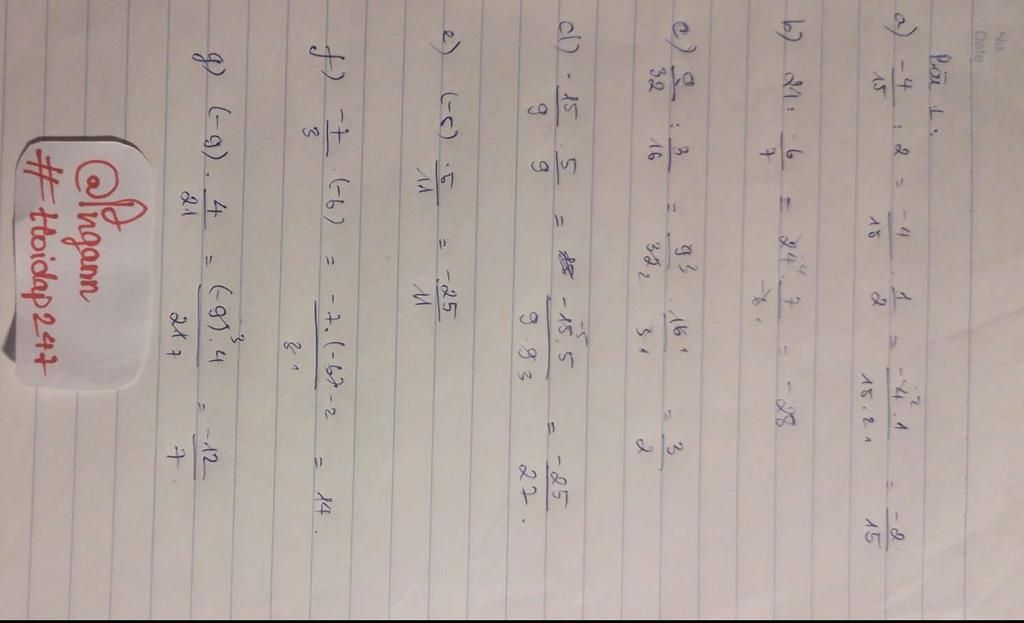 No.
Date
Bài 1:
a) -4/15 : 2 = -4/15 . 1/2 = -4² . 1 / 15 . 2₁ = -2/15
b) 21 : -6/7 = 24⁻⁴ . 7/-6₁ = -28
c) 9/32 : 3/16 = 9³/32₂ . 16₁/3₁ = 3/2
d) -15/9 . 5/9 = -15⁻⁵ . 5 / 9 . 9₃ = -25/27.
e) (-5) . 5/11 = -25/11
f) -7/3 . (-6) = -7 . (-6)-2 / 3₁ = 14.
g) (-9) . 4/21 = (-9)³ . 4 / 21₇ = -12/7
@Pngann
#Hoidap247